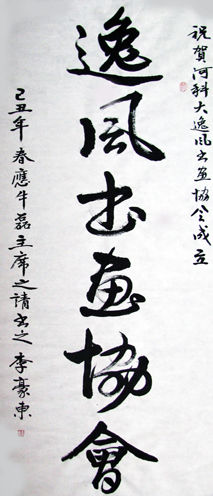 祝賀河科大逸風书畫協会成立
逸風书畫協會
己丑年春應牛磊主席之請书之李豪東